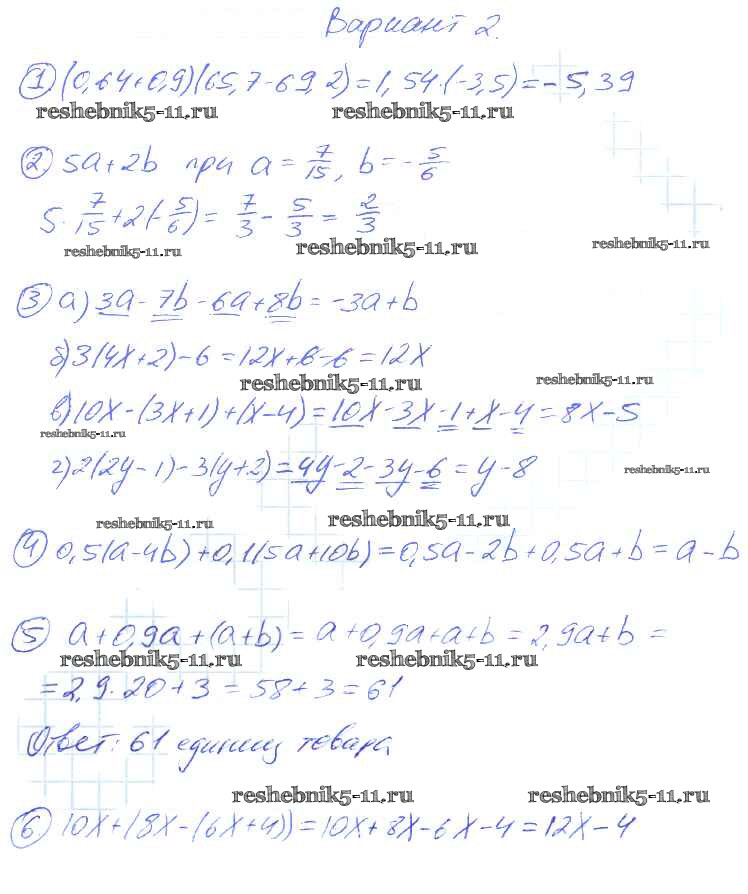 Вариант 2.
1) (0,64+0,9)(65,7-69,2)=1,54·(-3,5)=-5,39
reshebnik5-11.ru reshebnik5-11.ru
2) 5a+2b при a=7/15, b=-5/6
5·7/15+2(-5/6)=7/3-5/3=2/3
reshebnik5-11.ru reshebnik5-11.ru reshebnik5-11.ru
3) а) 3a-7b-6a+8b=-3a+b
б) 3(4x+2)-6=12x+6-6=12x
reshebnik5-11.ru reshebnik5-11.ru
в) 10x-(3x+1)+(x-4)=10x-3x-1+x-4=8x-5
reshebnik5-11.ru
г) 2(2y-1)-3(y+2)=4y-2-3y-6=y-8
reshebnik5-11.ru
reshebnik5-11.ru reshebnik5-11.ru
4) 0,5(a-4b)+0,1(5a+10b)=0,5a-2b+0,5a+b=a-b
5) a+0,9a+(a+b)=a+0,9a+a+b=2,9a+b=
reshebnik5-11.ru reshebnik5-11.ru
=2,9·20+3=58+3=61
Ответ: 61 единиц товара
reshebnik5-11.ru reshebnik5-11.ru
6) 10x+(8x-(6x+4))=10x+8x-6x-4=12x-4